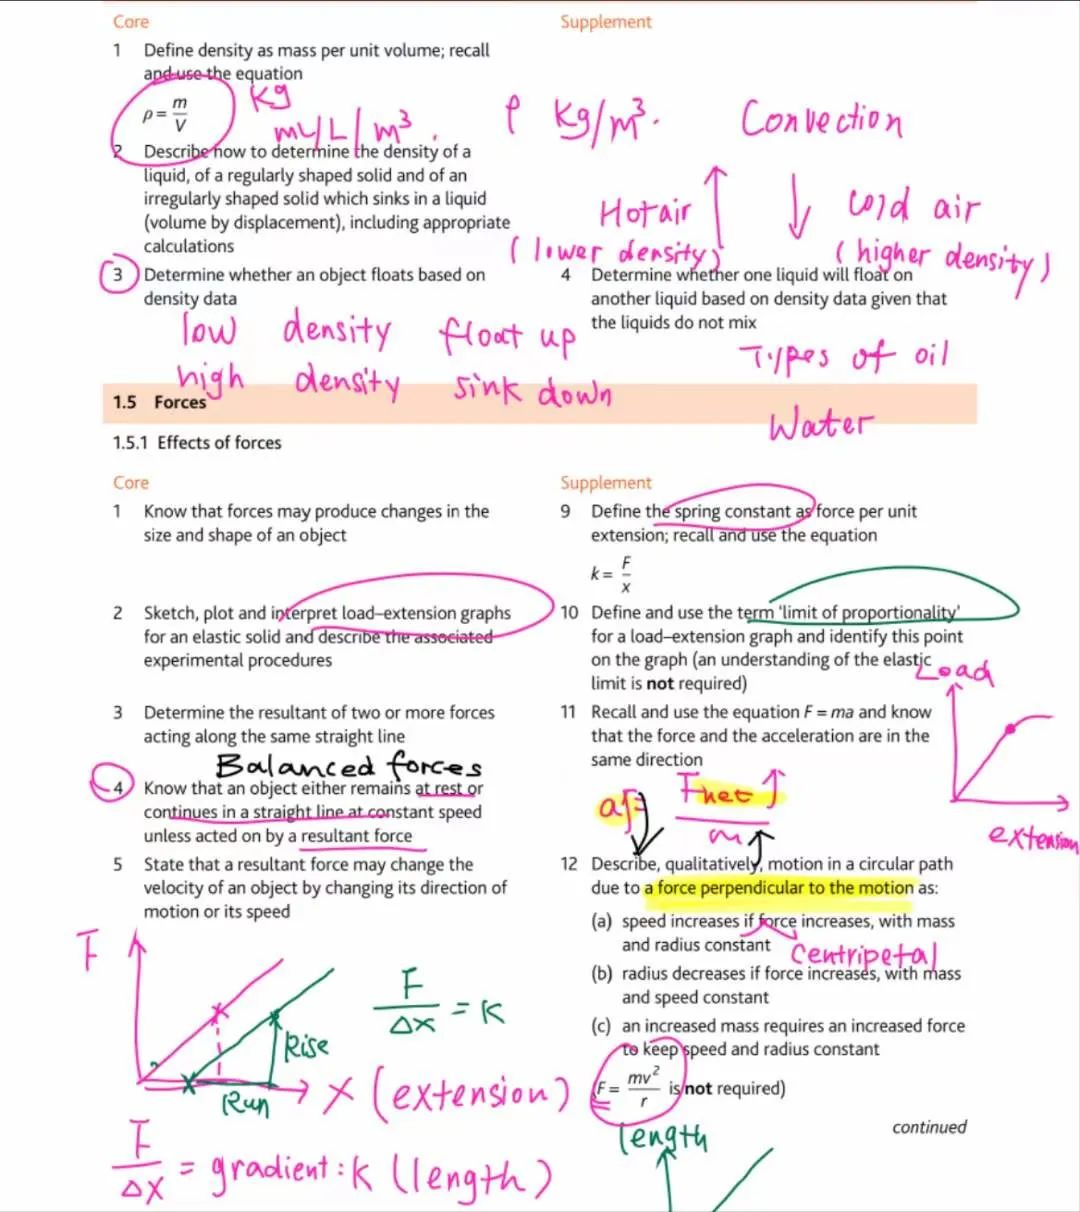 Core
Supplement
1 Define density as mass per unit volume; recall
and use the equation
ρ = m/V
Kg
mL/L/m³
ρ Kg/m³.
Convection
2 Describe how to determine the density of a
liquid, of a regularly shaped solid and of an
irregularly shaped solid which sinks in a liquid
(volume by displacement), including appropriate
calculations
Hot air
(lower density)
cold air
(higher density)
3 Determine whether an object floats based on
density data
4 Determine whether one liquid will float on
another liquid based on density data given that
the liquids do not mix
low density float up
high density sink down
Types of oil
Water
1.5 Forces
1.5.1 Effects of forces
Core
Supplement
1 Know that forces may produce changes in the
size and shape of an object
9 Define the spring constant as force per unit
extension; recall and use the equation
k = F/x
2 Sketch, plot and interpret load–extension graphs
for an elastic solid and describe the associated
experimental procedures
10 Define and use the term 'limit of proportionality'
for a load–extension graph and identify this point
on the graph (an understanding of the elastic
limit is not required)
Load
extension
3 Determine the resultant of two or more forces
acting along the same straight line
11 Recall and use the equation F = ma and know
that the force and the acceleration are in the
same direction
Balanced forces
4 Know that an object either remains at rest or
continues in a straight line at constant speed
unless acted on by a resultant force
a = Fnet/m
5 State that a resultant force may change the
velocity of an object by changing its direction of
motion or its speed
12 Describe, qualitatively, motion in a circular path
due to a force perpendicular to the motion as:
(a) speed increases if force increases, with mass
and radius constant
Centripetal
(b) radius decreases if force increases, with mass
and speed constant
(c) an increased mass requires an increased force
to keep speed and radius constant
(F = mv²/r is not required)
continued
F
F/Δx = K
Rise
Run
X (extension)
F/Δx = gradient: K (length)
length